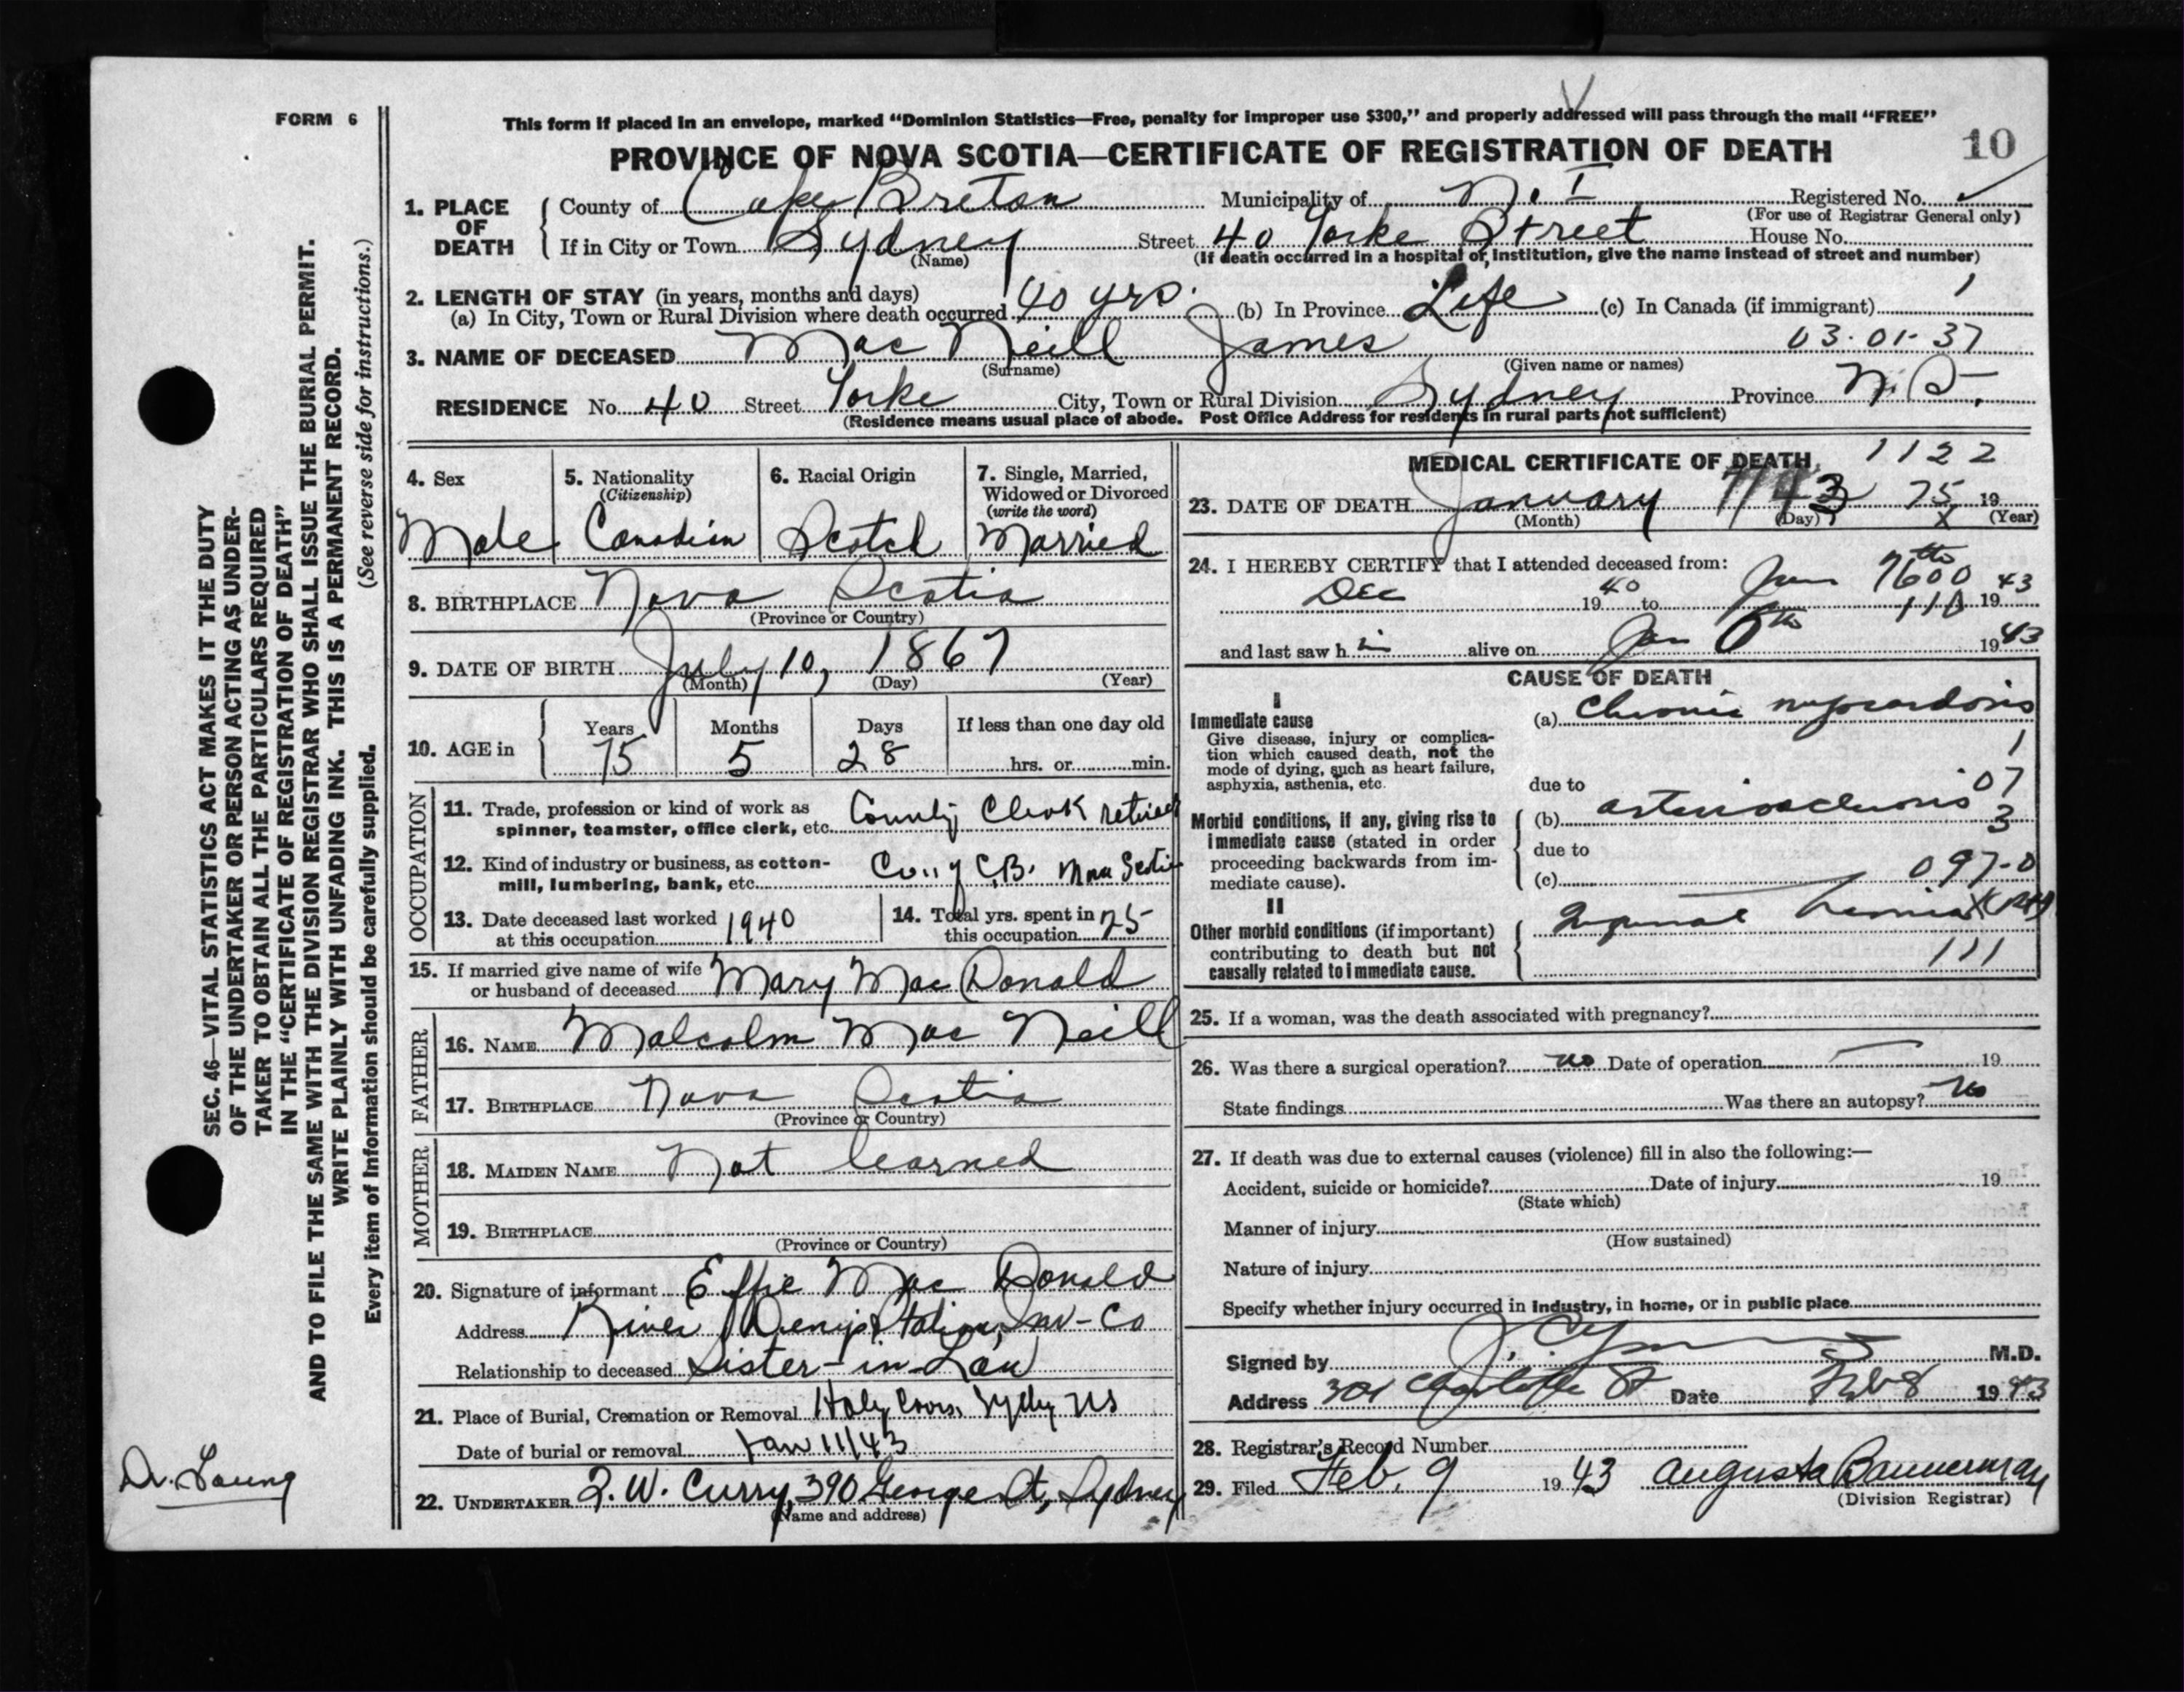 FORM 6
This form if placed in an envelope, marked “Dominion Statistics—Free, penalty for improper use $300,” and properly addressed will pass through the mail “FREE”
PROVINCE OF NOVA SCOTIA—CERTIFICATE OF REGISTRATION OF DEATH
10
1. PLACE OF DEATH
County of Cape Breton Municipality of Registered No.
(For use of Registrar General only)
If in City or Town Sydney Street 40 Yorke Street House No.
(Name) (If death occurred in a hospital or institution, give the name instead of street and number)
2. LENGTH OF STAY (in years, months and days)
(a) In City, Town or Rural Division where death occurred 40 yrs. (b) In Province Life (c) In Canada (if immigrant) 1
3. NAME OF DECEASED Mac Neill James 03·01·37
(Surname) (Given name or names)
RESIDENCE No. 40 Street Yorke City, Town or Rural Division Sydney Province N.S.
(Residence means usual place of abode. Post Office Address for residents in rural parts not sufficient)
4. Sex Male
5. Nationality (Citizenship) Canadian
6. Racial Origin Scotch
7. Single, Married, Widowed or Divorced (write the word) Married
8. BIRTHPLACE Nova Scotia
(Province or Country)
9. DATE OF BIRTH July 10, 1867
(Month) (Day) (Year)
10. AGE in Years Months Days If less than one day old
75 5 28 hrs. or min.
OCCUPATION
11. Trade, profession or kind of work as spinner, teamster, office clerk, etc. County Clerk retired
12. Kind of industry or business, as cotton-mill, lumbering, bank, etc. C.B. Nova Scotia
13. Date deceased last worked at this occupation 1940
14. Total yrs. spent in this occupation 25
15. If married give name of wife or husband of deceased Mary Mac Donald
FATHER
16. NAME Malcolm Mac Neill
17. BIRTHPLACE Nova Scotia
(Province or Country)
MOTHER
18. MAIDEN NAME Not learned
19. BIRTHPLACE
(Province or Country)
20. Signature of informant Effie Mac Donald
Address River Denys Station, Inv-Co
Relationship to deceased Sister-in-Law
21. Place of Burial, Cremation or Removal Holy Cross, Sydney NS
Date of burial or removal Jan 11/43
22. UNDERTAKER W. Curry, 390 George St, Sydney
(Name and address)
MEDICAL CERTIFICATE OF DEATH 1122
23. DATE OF DEATH January 75 19
(Month) (Day) X (Year)
24. I HEREBY CERTIFY that I attended deceased from:
Dec 1940 to Jan 7th 1943
and last saw h im alive on Jan 6th 1943
CAUSE OF DEATH
I
Immediate cause
Give disease, injury or complication which caused death, not the mode of dying, such as heart failure, asphyxia, asthenia, etc.
(a) Chronic myocarditis
1
due to 07
Morbid conditions, if any, giving rise to immediate cause (stated in order proceeding backwards from immediate cause).
(b) arteriosclerosis 3
due to
(c) 097-0
II
Other morbid conditions (if important) contributing to death but not causally related to immediate cause.
Inguinal hernia
111
25. If a woman, was the death associated with pregnancy?
26. Was there a surgical operation? no Date of operation 19
State findings Was there an autopsy? no
27. If death was due to external causes (violence) fill in also the following:—
Accident, suicide or homicide? Date of injury 19
(State which)
Manner of injury
(How sustained)
Nature of injury
Specify whether injury occurred in industry, in home, or in public place
Signed by M.D.
Address 301 Charlotte St Date Feb 8 1943
28. Registrar's Record Number
29. Filed Feb. 9 1943 Augusta Bannerman
(Division Registrar)
SEC. 46—VITAL STATISTICS ACT MAKES IT THE DUTY
OF THE UNDERTAKER OR PERSON ACTING AS UNDER-
TAKER TO OBTAIN ALL THE PARTICULARS REQUIRED
IN THE “CERTIFICATE OF REGISTRATION OF DEATH”
AND TO FILE THE SAME WITH THE DIVISION REGISTRAR WHO SHALL ISSUE THE BURIAL PERMIT.
WRITE PLAINLY WITH UNFADING INK. THIS IS A PERMANENT RECORD.
Every item of information should be carefully supplied. (See reverse side for instructions.)
Dr.